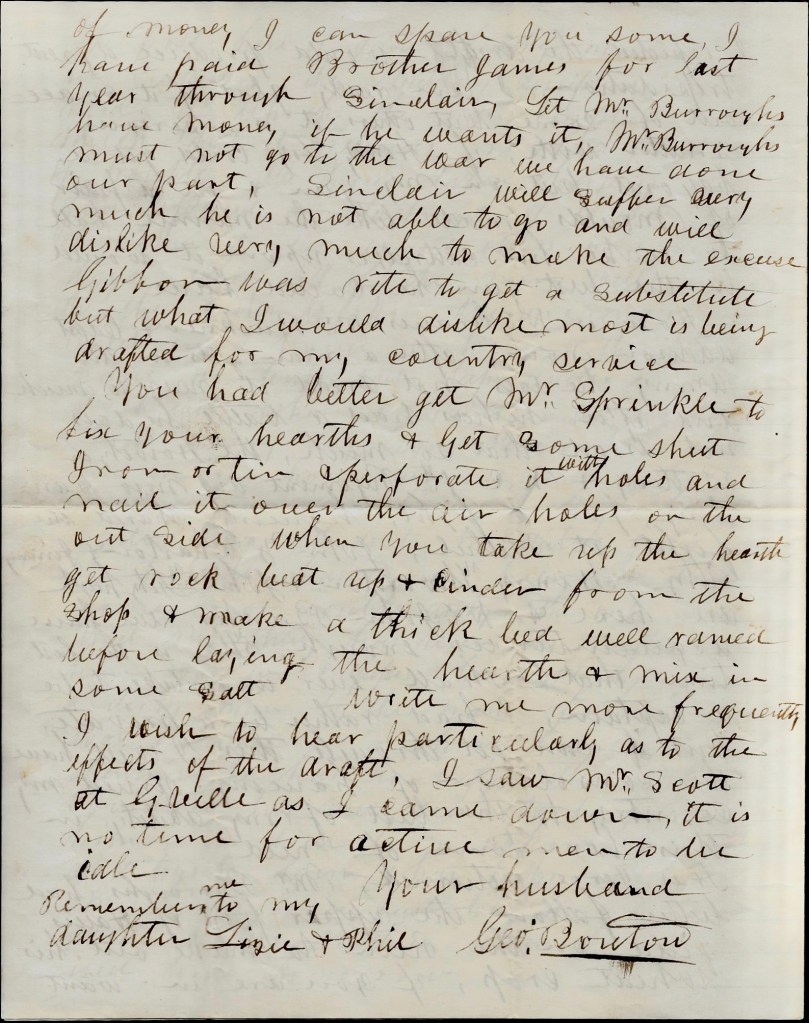 of money I can spare you some, I
have paid Brother James for last
year through Sinclair, Let Mr. Burroughs
have money if he wants it, Mr. Burroughs
must not go to the war we have done
our part, Sinclair will suffer very
much he is not able to go and will
dislike very much to make the excuse
Gibbon was rite to get a Substitute
but what I would dislike most is being
drafted for my country service
You had better get Mr. Sprinkle to
fix your hearths & Get some shut
Iron or tin & perforate it with holes and
nail it over the air holes on the
out side when you take up the hearth
get rock beat up & cinder from the
shop & make a thick bed well ramed
before laying the hearth & mix in
some Salt write me more frequently
I wish to hear particularly as to the
effects of the draft, I saw Mr. Scott
at Gville as I came down, it is
no time for active men to be
idle
Your husband
Remember me to my
daughter Lizie & Phil Geo. Bouton